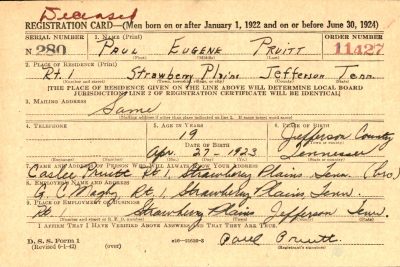 Deceased
REGISTRATION CARD—(Men born on or after January 1, 1922 and on or before June 30, 1924)
SERIAL NUMBER 1. NAME (Print) ORDER NUMBER
N 280 PAUL EUGENE PRUITT 11427
(First) (Middle) (Last)
2. PLACE OF RESIDENCE (Print)
Rt. 1 Strawberry Plains Jefferson Tenn.
(Number and street) (Town, township, village, or city) (County) (State)
[THE PLACE OF RESIDENCE GIVEN ON THE LINE ABOVE WILL DETERMINE LOCAL BOARD
JURISDICTION; LINE 2 OF REGISTRATION CERTIFICATE WILL BE IDENTICAL]
3. MAILING ADDRESS
Same
[Mailing address if other than place indicated on line 2. If same insert word same]
4. TELEPHONE 5. AGE IN YEARS 6. PLACE OF BIRTH
19 Jefferson County
DATE OF BIRTH
Apr. 27 - 1923 Tennessee
(Mo.) (Day) (Yr.)
7. NAME AND ADDRESS OF PERSON WHO WILL ALWAYS KNOW YOUR ADDRESS
Pruitt Rt. 1, Strawberry Plains Tenn. (bro)
8. EMPLOYER'S NAME AND ADDRESS
G. C. Rt. 1, Strawberry Plains, Tenn.
9. PLACE OF EMPLOYMENT OR BUSINESS
Rt. 1 Strawberry Plains Jefferson Tenn.
(Number and street or R. F. D. number) (Town) (County) (State)
I AFFIRM THAT I HAVE VERIFIED ABOVE ANSWERS AND THAT THEY ARE TRUE.
D. S. S. Form 1
(Revised 6-1-42) (over) Paul Pruitt
(Registrant's signature)